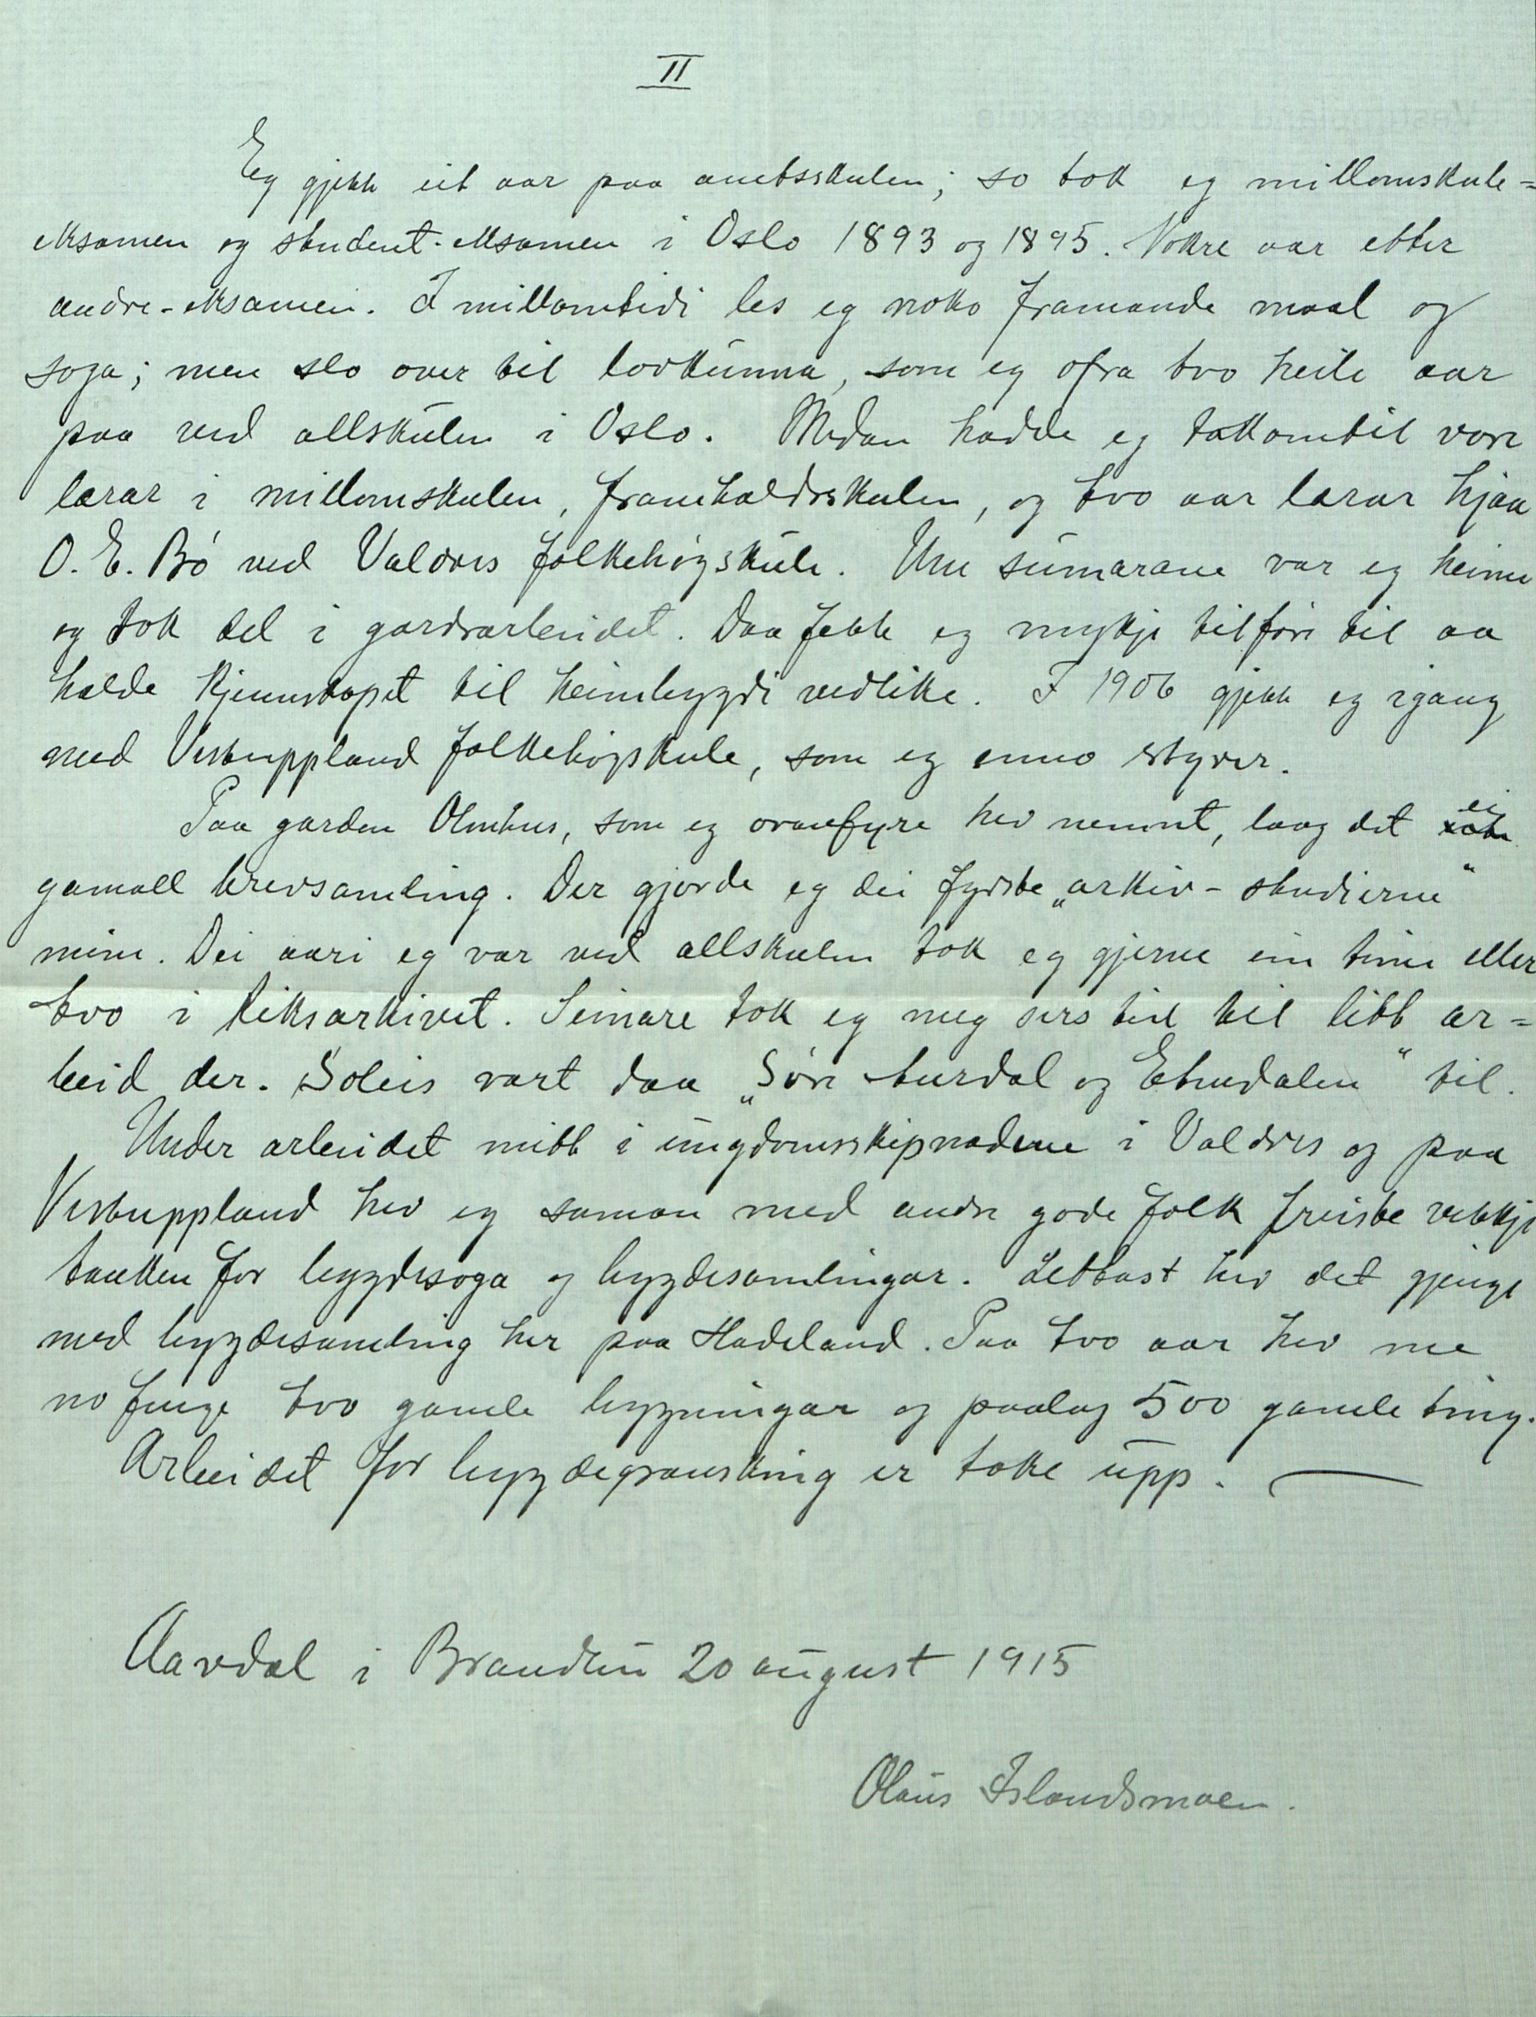 II
Eg gjekk eit aar paa amtsskulen; so tok eg millomskule=
eksamen og student-eksamen i Oslo 1893 og 1895. Nokre aar etter
andre-eksamen. I millomtidi les eg noko framande maal og
soga; men slo over til lovkunna, som eg ofra tvo heile aar
paa ved allskulen i Oslo. Medan hadde eg tak om til vore
lærar i millomskulen, framhaldsskulen, og tvo aar lærar hjaa
O. E. Bø ved Valdres folkehøgskule. Um sumarane var eg heime
og tok del i gardsarbeidet. Daa fekk eg mykje tilføre til aa
halde kjennskapet til heimbygdi vedlike. I 1906 gjekk eg igang
med Vestuppland folkehøgskule, som eg enno styrer.
Paa garden Olmhus, som eg ovanfyre hev nemnt, laag det ei
gamall brevsamling. Der gjorde eg dei fyrste „arkiv-studierne“
mine. Dei aari eg var ved allskulen tok eg gjerne ein time eller
tvo i Riksarkivet. Seinare tok eg meg sers tid til litt ar=
beid der. Soleis vart daa „Søre Aurdal og Etnedalen“ til.
Under arbeidet mitt i ungdomsskipnadene i Valdres og paa
Vestuppland hev eg saman med andre gode folk freista vekkje
tanken for bygdesoga og bygdesamlingar. Lettast hev det gjenge
med bygdesamling her paa Hadeland. Paa tvo aar hev me
no fenge tvo gamle bygningar og paalag 500 gamle ting.
Arbeidet for bygdegransking er teke upp. —
Aavdal i Brandbu 20 august 1915
Olaus Islandsmoen.